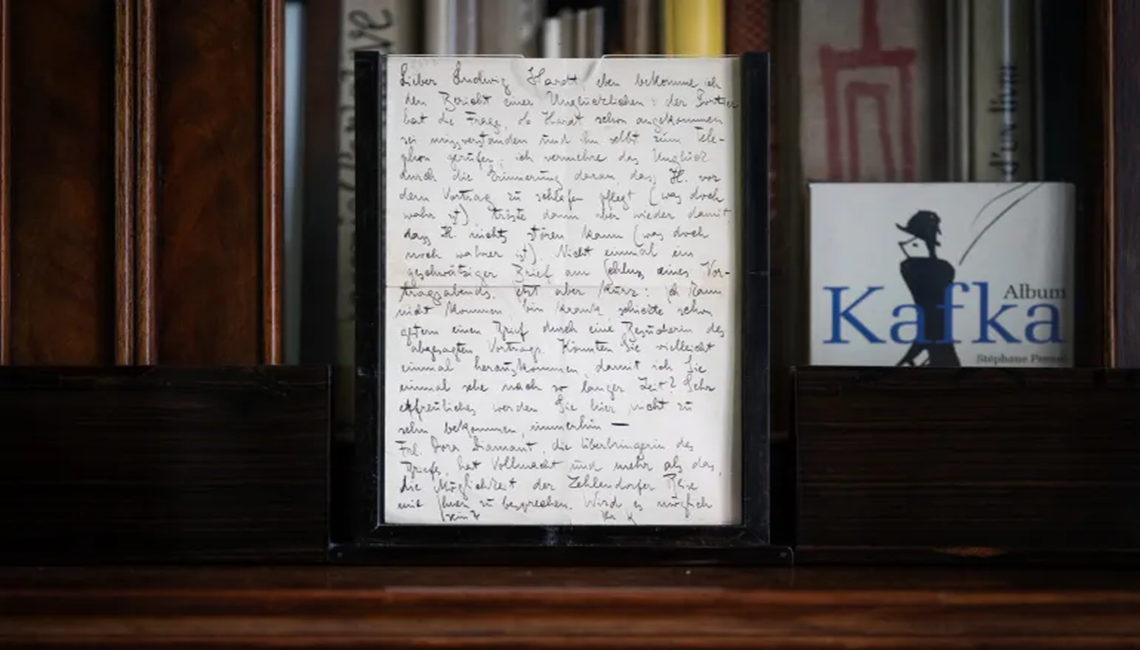 Lieber Ludwig Hardt, eben bekomme ich
den Bericht eines Unglücklichen: der Portier
hat die Frage, ob Hardt schon angekommen
sei missverstanden und ihn selbst zum Tele-
phon gerufen; ich vermehre das Unglück
durch die Erinnerung daran, dass H. vor
dem Vortrag zu schlafen pflegt (was doch
wahr ist), tröste dann aber wieder damit,
dass H. nichts stören kann (was doch
noch wahrer ist). Nicht einmal ein
geschwätziger Brief am Schluss eines Vor-
tragsabends. Jetzt aber kurz: ich kann
nicht kommen bin krank, schickte schon
gestern einen Brief durch eine Besucherin des
abgesagten Vortrags. Könnten Sie vielleicht
einmal herauskommen, damit ich Sie
einmal sehe nach so langer Zeit? Sehr
erfreuliches werden Sie hier nicht zu
sehn bekommen, immerhin —
Frl. Dora Diamant, die Überbringerin des
Briefs, hat Vollmacht und mehr als das,
die Möglichkeit der Zehlendorfer Reise
mit Ihnen zu besprechen. Wird es möglich
sein?
Ihr K
Kafka
Album
Stéphane